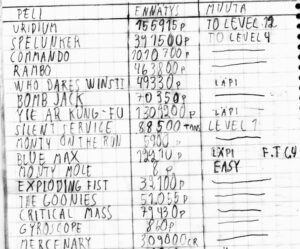 PELI ENNÄTYS MUUTA
URIDIUM 155915p TO LEVEL 12
SPELUNKER 391500p TO LEVEL 4
COMMANDO 1010700p
RAMBO
WHO DARES WINSII 49330p LÄPI
BOMB JACK 70350p
YIE AR KUNG-FU 1309200p LÄPI
SILENT SERVICE 88500 TONS LEVEL 1
MONTY ON THE RUN
BLUE MAX LÄPI F.T C4
MONTY MOLE EASY
EXPLODING FIST 32100p
THE GOONIES 51055p
CRITICAL MASS 79430p
GYROSCOPE 840p
MERCENARY 309000CR